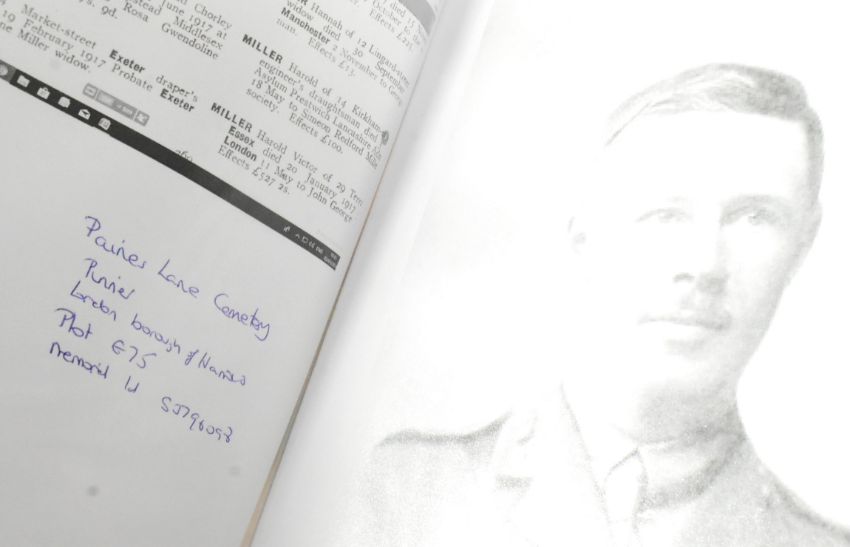 Chorley
June 1917 at
Middlesex
7s. 9d. Rosa Gwendoline
Market-street Exeter draper's
19 February 1917 Probate Exeter
Miller widow.
Hannah of 12
widow died 30 September
Manchester 2 November to George
man. Effects £15.
MILLER Harold of 14
engineer's draughtsman died
Asylum Prestwich Lancashire
18 May to Simeon Redford
society. Effects £100.
MILLER Harold Victor of 29
Essex died 20 January 1917
London 11 May to John George
Effects £527 2s.
Paines Lane Cemetery
Pinner
London borough of Harrow
Plot E75
Memorial Id SJ796098